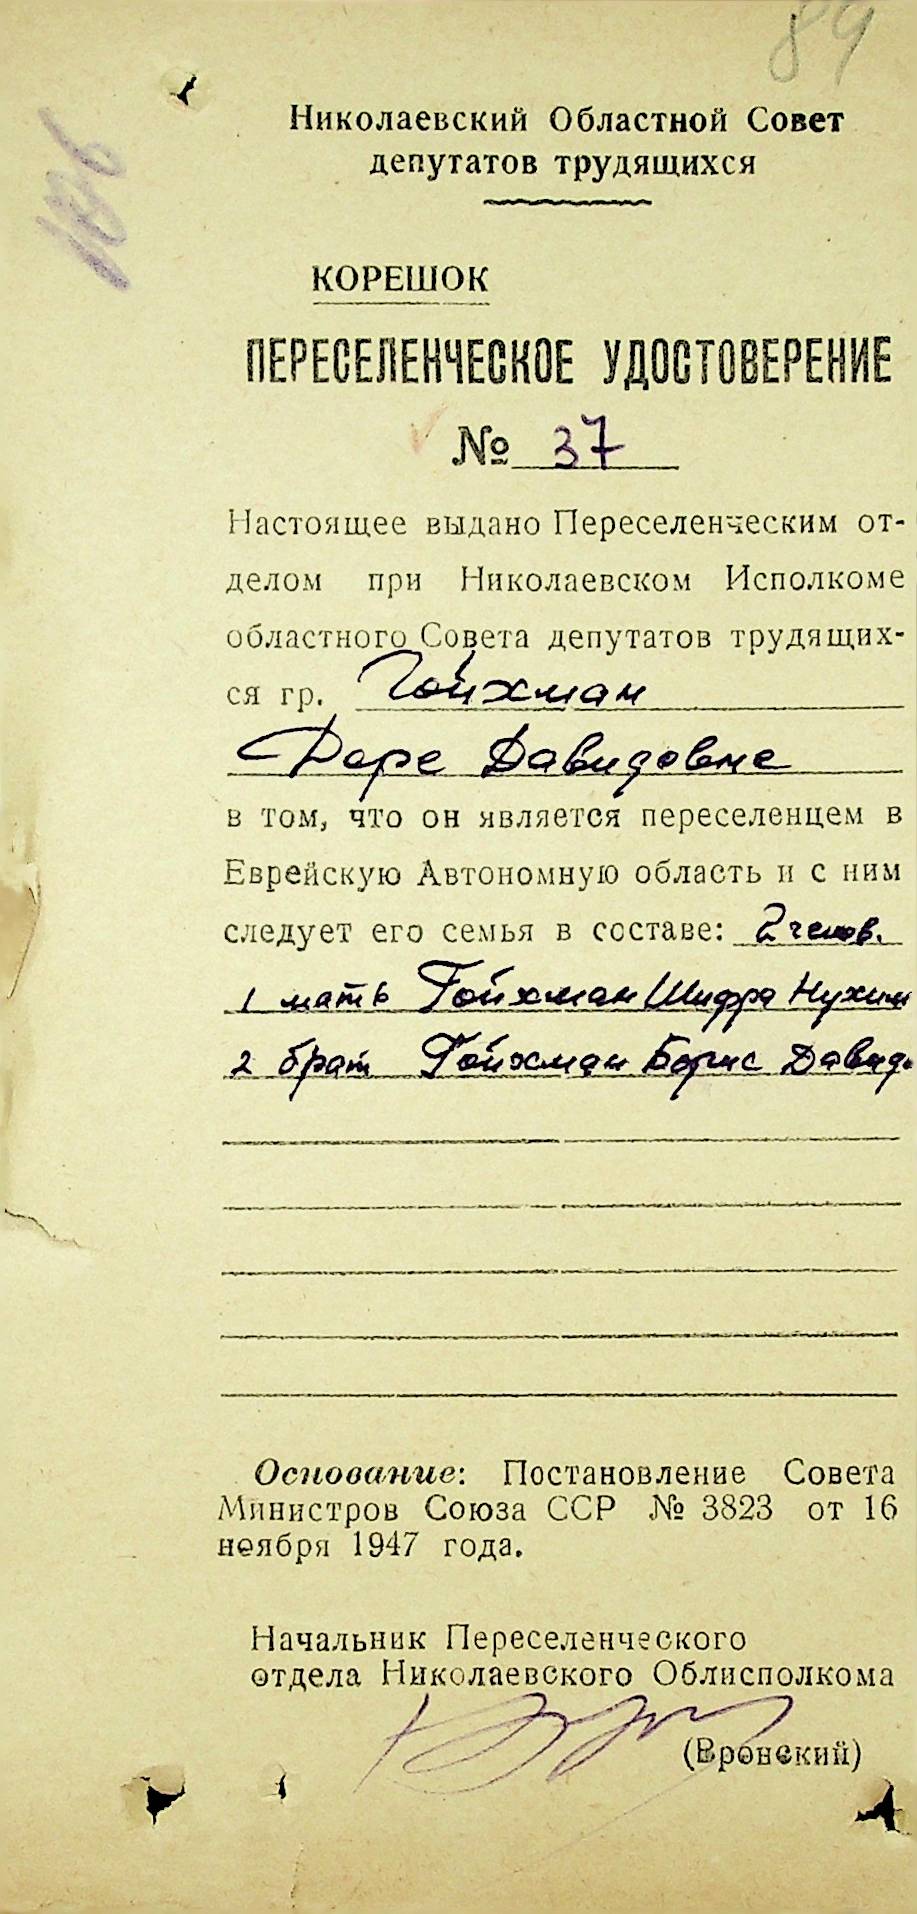 89
106
Николаевский Областной Совет
депутатов трудящихся
КОРЕШОК
ПЕРЕСЕЛЕНЧЕСКОЕ УДОСТОВЕРЕНИЕ
№ 37
Настоящее выдано Переселенческим от-
делом при Николаевском Исполкоме
областного Совета депутатов трудящих-
ся гр. Гойхман
Доре Давидовне
в том, что он является переселенцем в
Еврейскую Автономную область и с ним
следует его семья в составе: 2 челов.
1 мать Гойхман Шифра Нухим
2 брат Гойхман Борис Давидо
Основание: Постановление Совета
Министров Союза ССР № 3823 от 16
ноября 1947 года.
Начальник Переселенческого
отдела Николаевского Облисполкома
(Вронский)